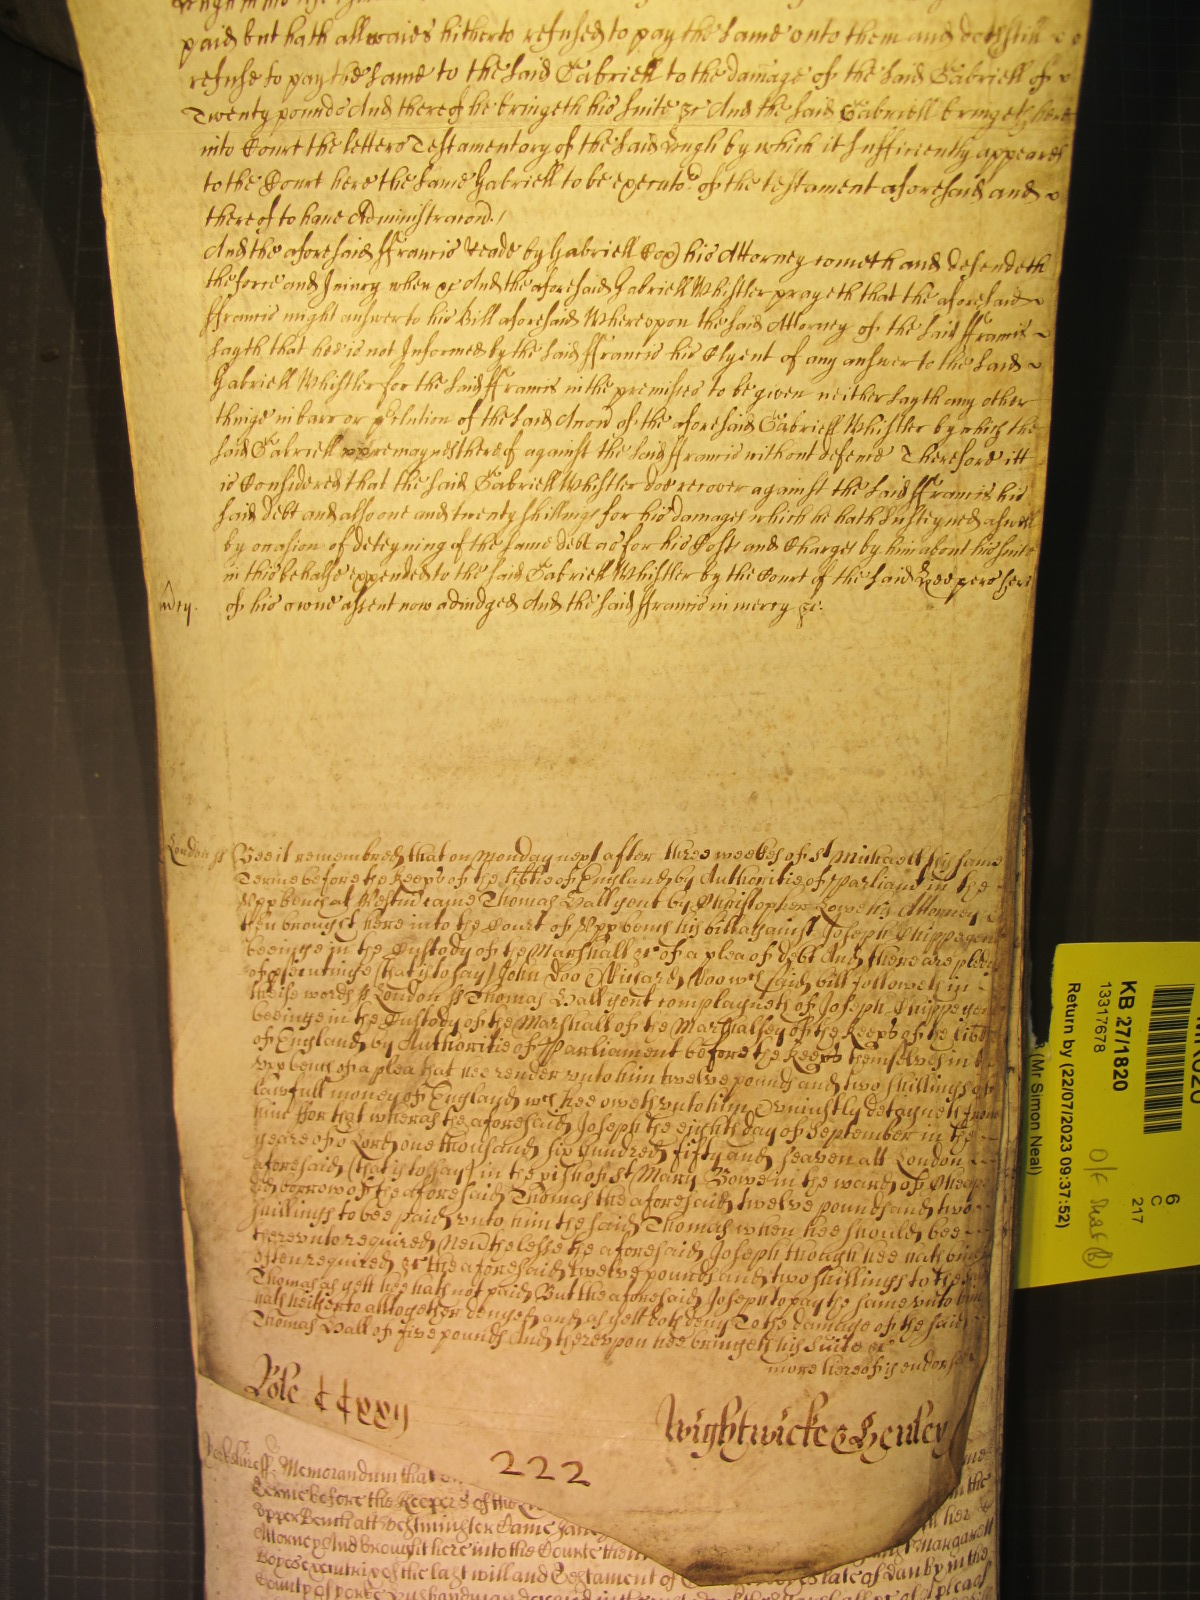 paid but hath allwaies hitherto refused to pay the same unto them and doth still
refuse to pay the same to the said Gabriell to the damage of the said Gabriell of
Twenty pounds And thereof he bringeth his suite &c And the said Gabriell bringeth here
into Court the letters Testamentory of the said Hugh by which it sufficiently appeares
to the Court here the same Gabriell to be executor of the testament aforesaid and
thereof to have Administracion./
And the aforesaid ffrancis Reade by Gabriell Cox his Attorney cometh and defendeth
the force and Iniury when &c And the aforesaid Gabriell Whistler prayeth that the aforesaid
ffrancis might answer to his Bill aforesaid Whereupon the said Attorney of the said ffrancis
sayth that hee is not Informed by the said ffrancis his Clyent of any answer to the said
Gabriell Whistler for the said ffrancis in the premisses to be given neither sayth any other
thinge in barr or of the said Accon of the aforesaid Gabriell Whistler by which the
said Gabriell remaynes thereof against the said ffrancis without defence Therefore itt
is Considered that the said Gabriell Whistler doe recover against the said ffrancis his
said debt and also one and twenty shillings for his damages which he hath susteyned aswell
by occasion of deteyning of the same debt as for his Costs and Charges by him about his suite
in this behalfe expended to the said Gabriell Whistler by the Court of the said Keepers here
of his owne assent now adiudged And the said ffrancis in mercy &c.
mcy.
London ss Bee it remembred that on Monday next after three weekes of St Michaell this same
Terme before the Keeps of the libtie of England by Authoritie of Parliamt in the
Upp bench at Westm came Thomas Ball gent by Christopher Lowe his Attorney
then brought here into the Court of Upp bench his bill against Joseph Chippe gent
beeinge in the Custody of the Marshall &c of a plea of debt And there are pledges
of psecutinge (that is to say) John Doo Richard Roo wch said bill followeth in
theise words ss London ss Thomas Ball gent complayneth of Joseph Chippe gent
beeinge in the Custody of the Marshall of the Marshalsey of the Keeps of the libtie
of England by Authoritie of Parliament before the Keeps themselves in the
Upp bench of a plea that hee render unto him twelve pounds and two shillings of
lawfull money of England wch hee oweth unto him & uniustly deteyneth from
him ffor that wheras the aforesaid Joseph the eighth day of September in the
yeare of or Lord one thousand six hundred fifty and seaven att London
aforesaid (that is to say) in the pish of St Mary Bowe in the ward of Cheape
did borrow of the aforesaid Thomas the aforesaid twelve pounds and two
shillings to bee paid unto him the said Thomas when hee should bee
thereunto required Neverthelesse the aforesaid Joseph though hee hath bin
often required &c the aforesaid twelve pounds and two shillings to the said
Thomas as yett hee hath not paid But the aforesaid Joseph to pay the same unto him
hath hitherto alltogether denyed and as yett doth deny To the damage of the said
Thomas Ball of five pounds And thereupon hee bringeth his suite &c
more hereof is endorsed
Rotlo CCxxij
Wightwicke & Henley
222
Yorkshire ss. Memorandum that on
Terme before the Keepers of the in the
upper Bench att Westminster Came
Attorney And brought here into the Courte then Margarett
Executrix of the last will and Testament of late of Danby in the
County of yorke husbandman of a plea of
KB 27/1820
13317678
Return by (22/07/2023 09:37:52)
(Mr Simon Neal)
6
C
217